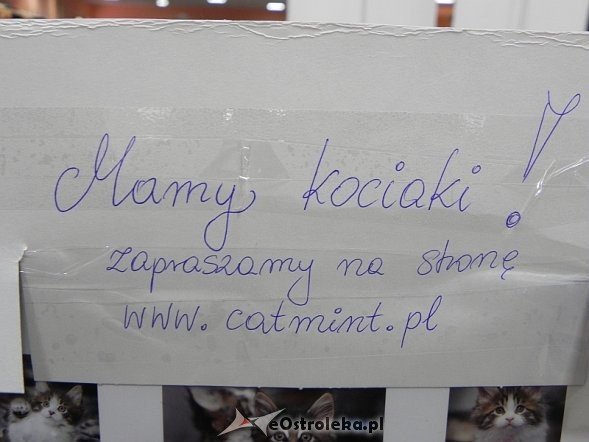 Mamy kociaki!
zapraszamy na stronę
www.catmint.pl
eOstroleka.pl